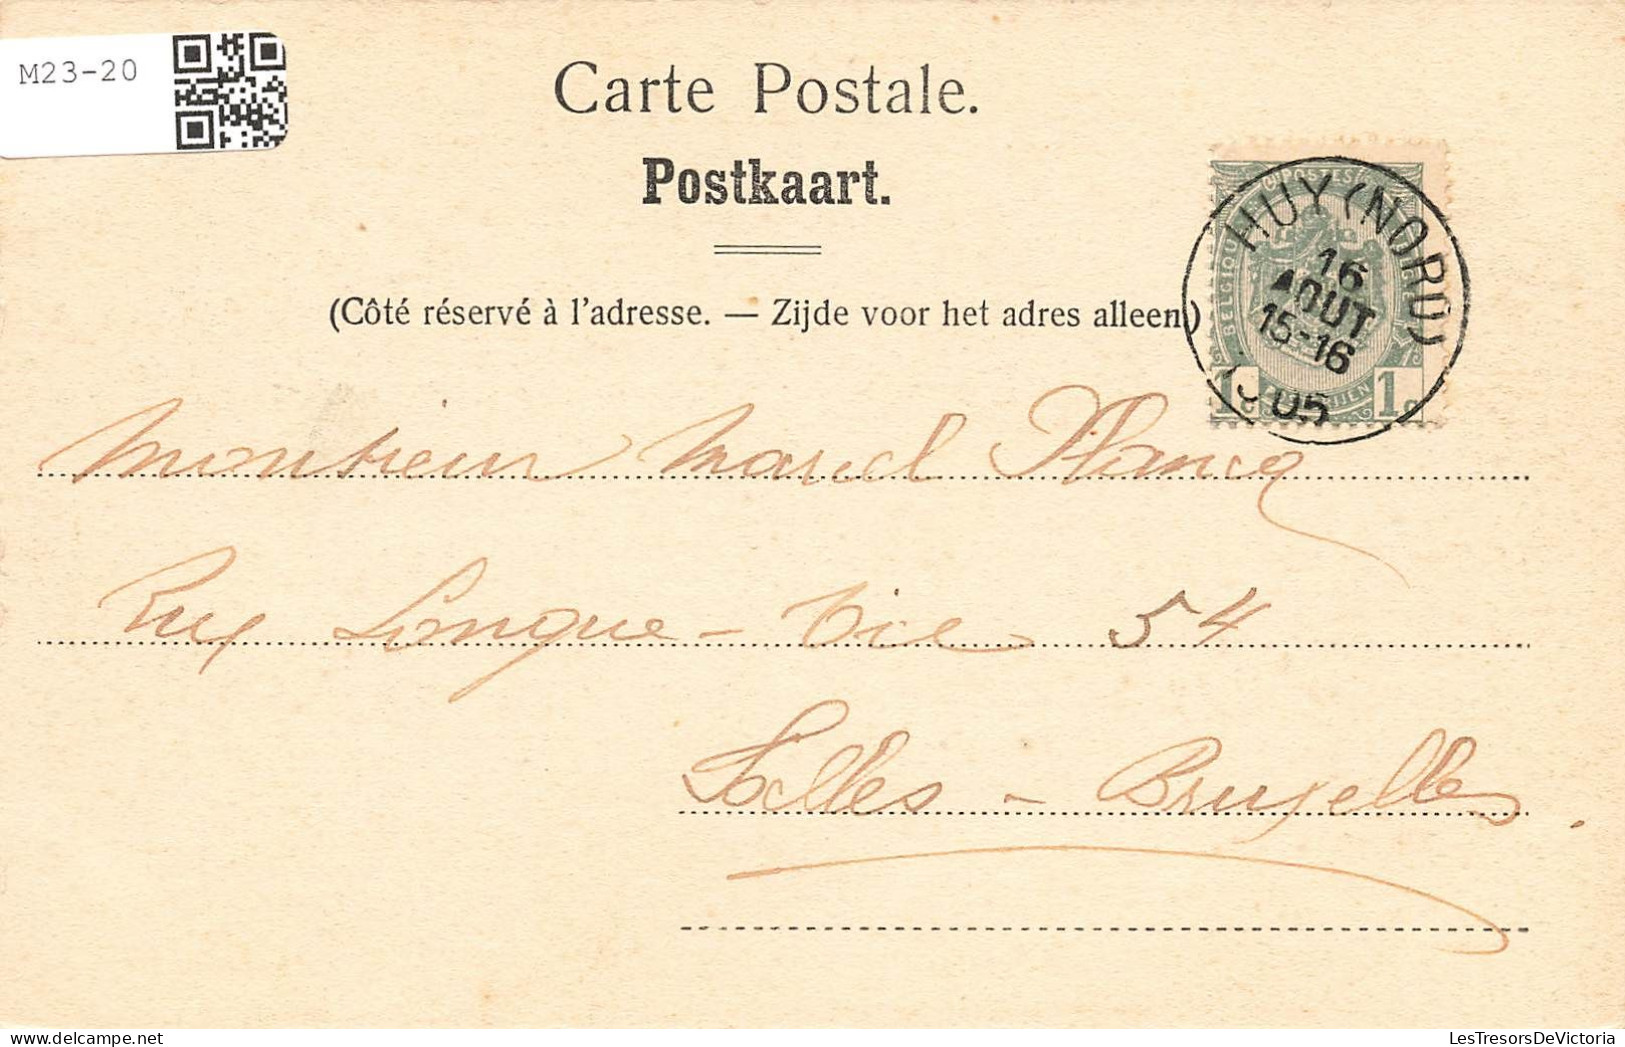 M23-20
Carte Postale.
Postkaart.
(Côté réservé à l'adresse. — Zijde voor het adres alleen)
POSTES
BELGIQUE
1c 1c
HUY (NORD)
16
AOUT
15-16
1905
Monsieur Marcel Plancq
Rue Longue-Vie 54
Ixelles - Bruxelles.
LesTresorsDeVictoria